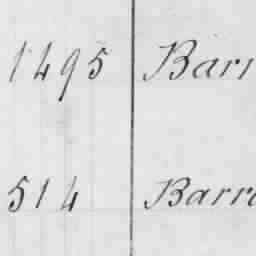 1495 Barr
514 Barr